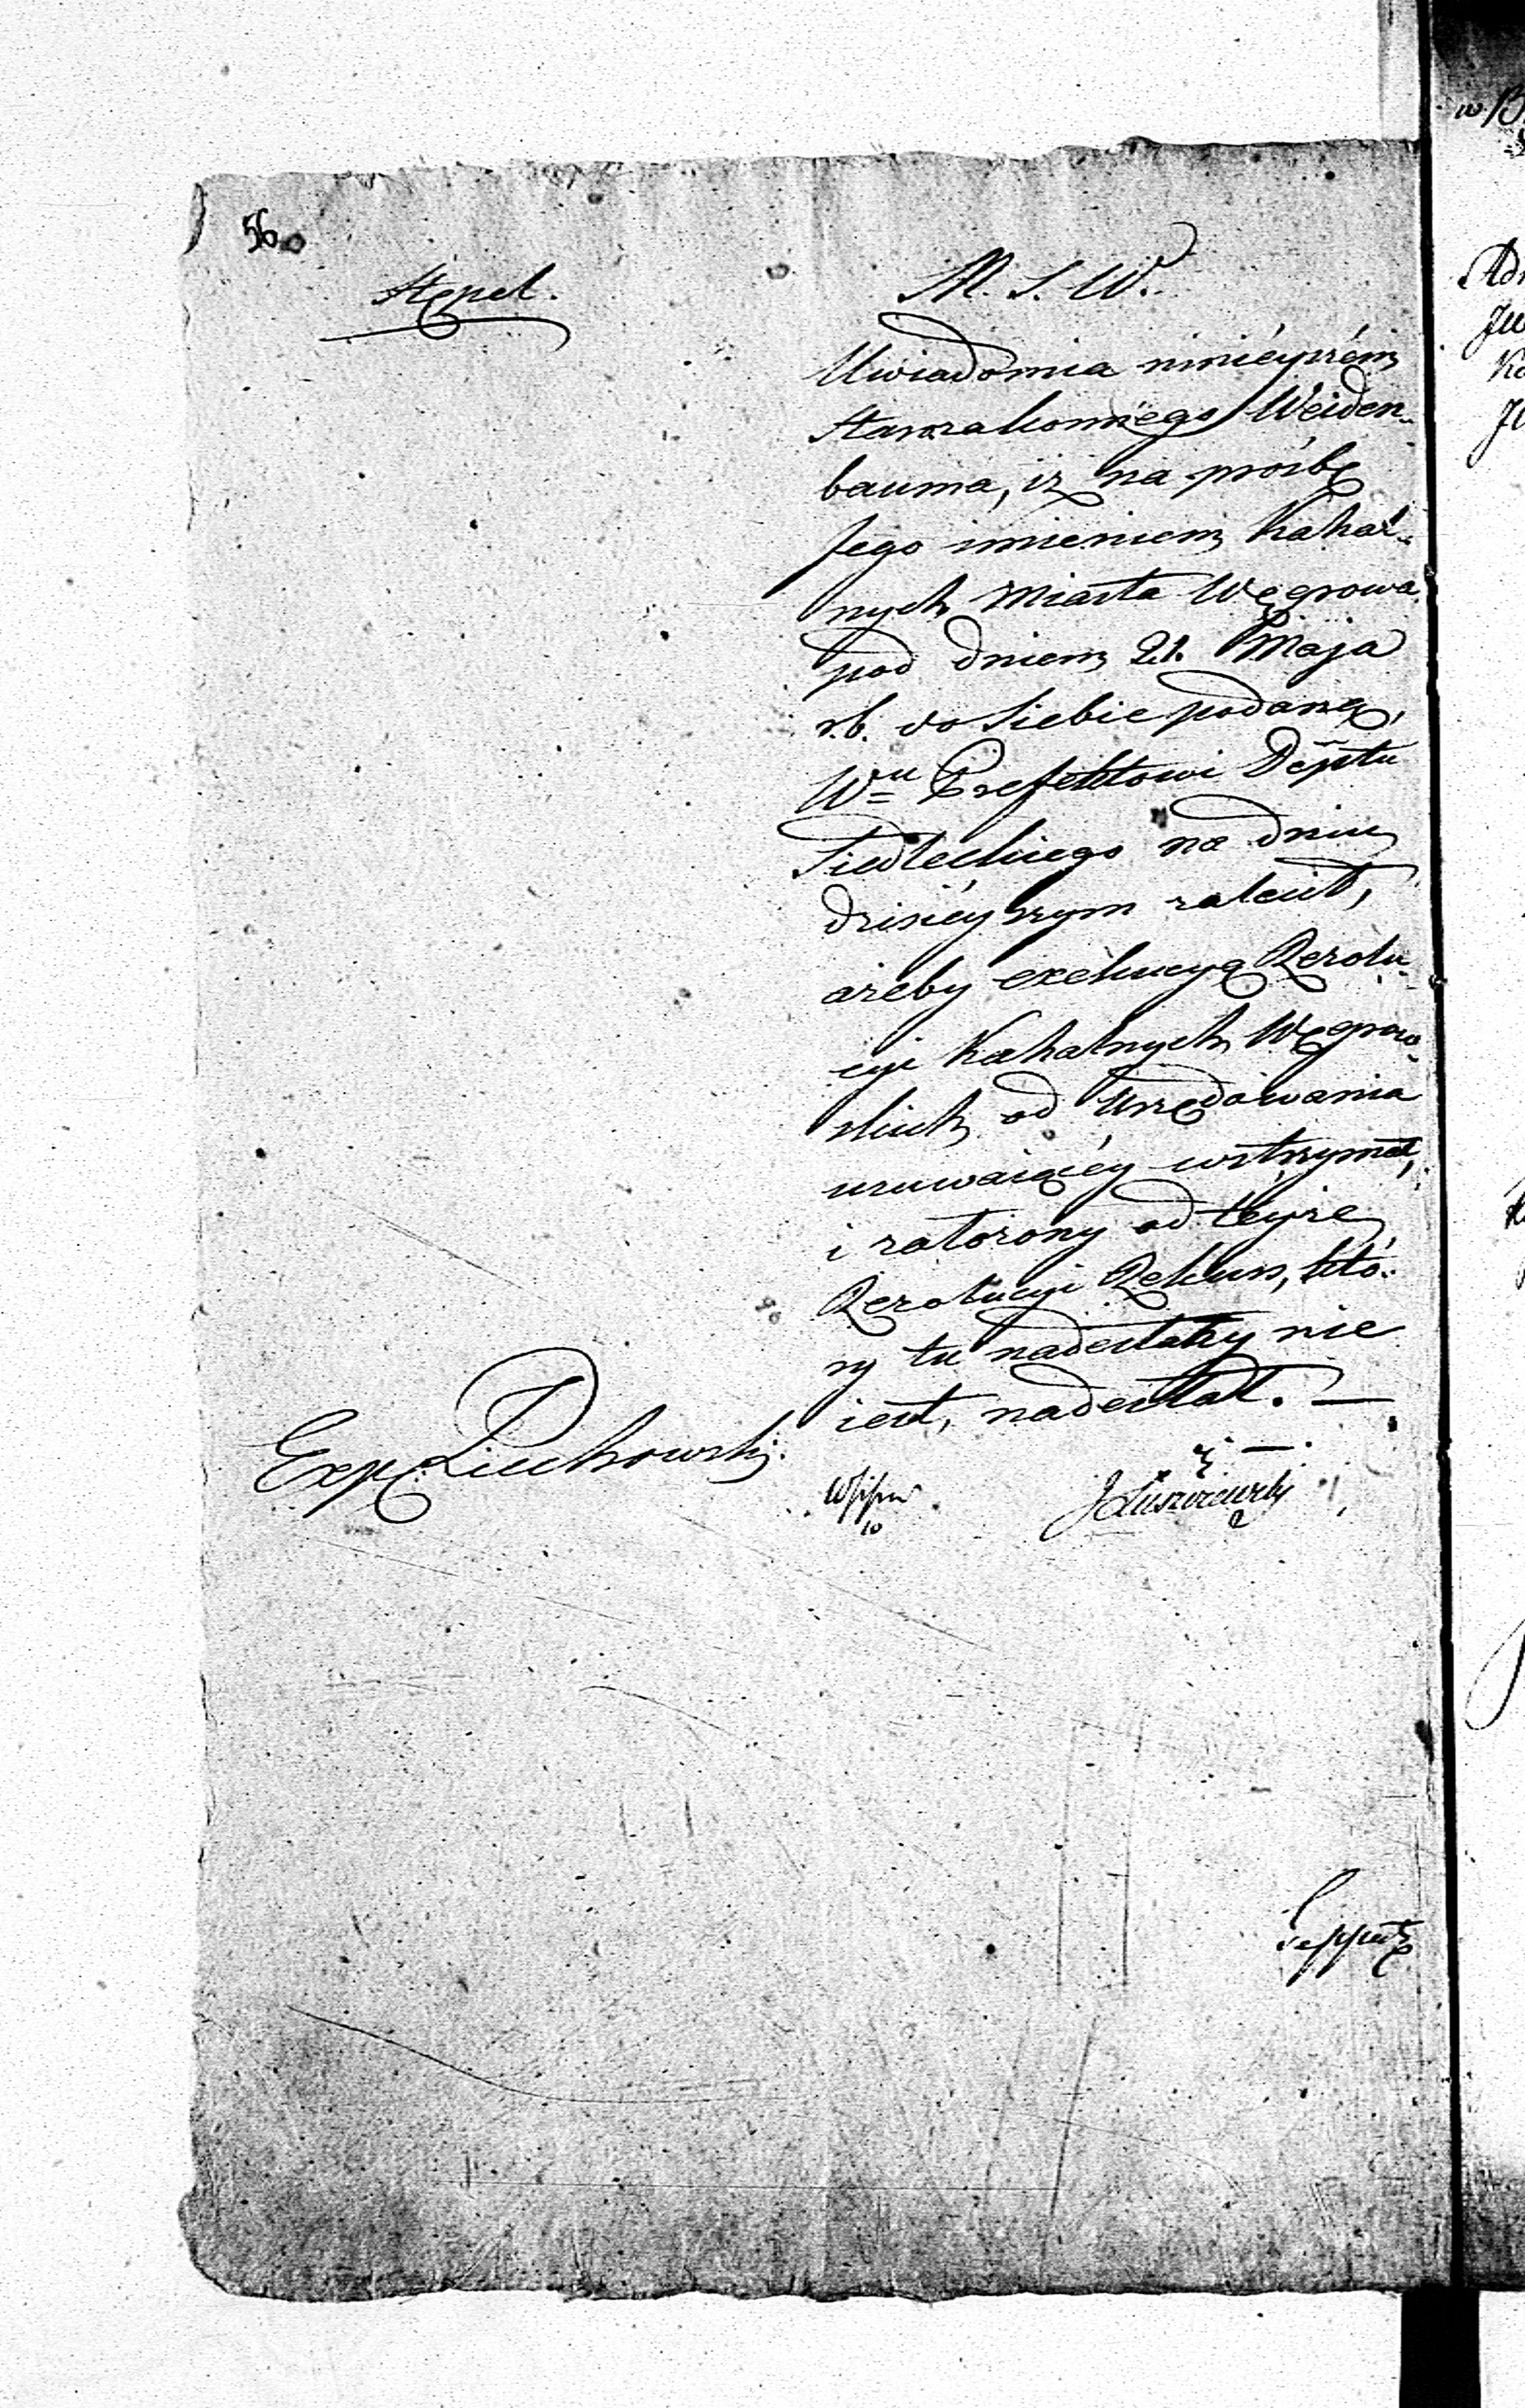 56
Stępel.
M. S. W.
Uwiadomia ninieyszém
Starozakonnego Weiden-
bauma, iż na prośbę
Jego imieniem Kahal-
nych Miasta Węgrowa
pod dniem 21. Maja
r.b. do siebie podaną,
Wu Prefektowi Deptu
Siedleckiego na dniu
dzisieyszym zalecił,
ażeby exekucyą Rezolu-
cyi Kahalnych Węgrow-
skich od Urzędowania
usuwaiącéy wstrzymał,
i założony od téyże
Rezolucyi Rekurs, któ-
ry tu nadesłany nie
iest, nadesłał. —
Exp. Liuchowski.
J Łuszczewski